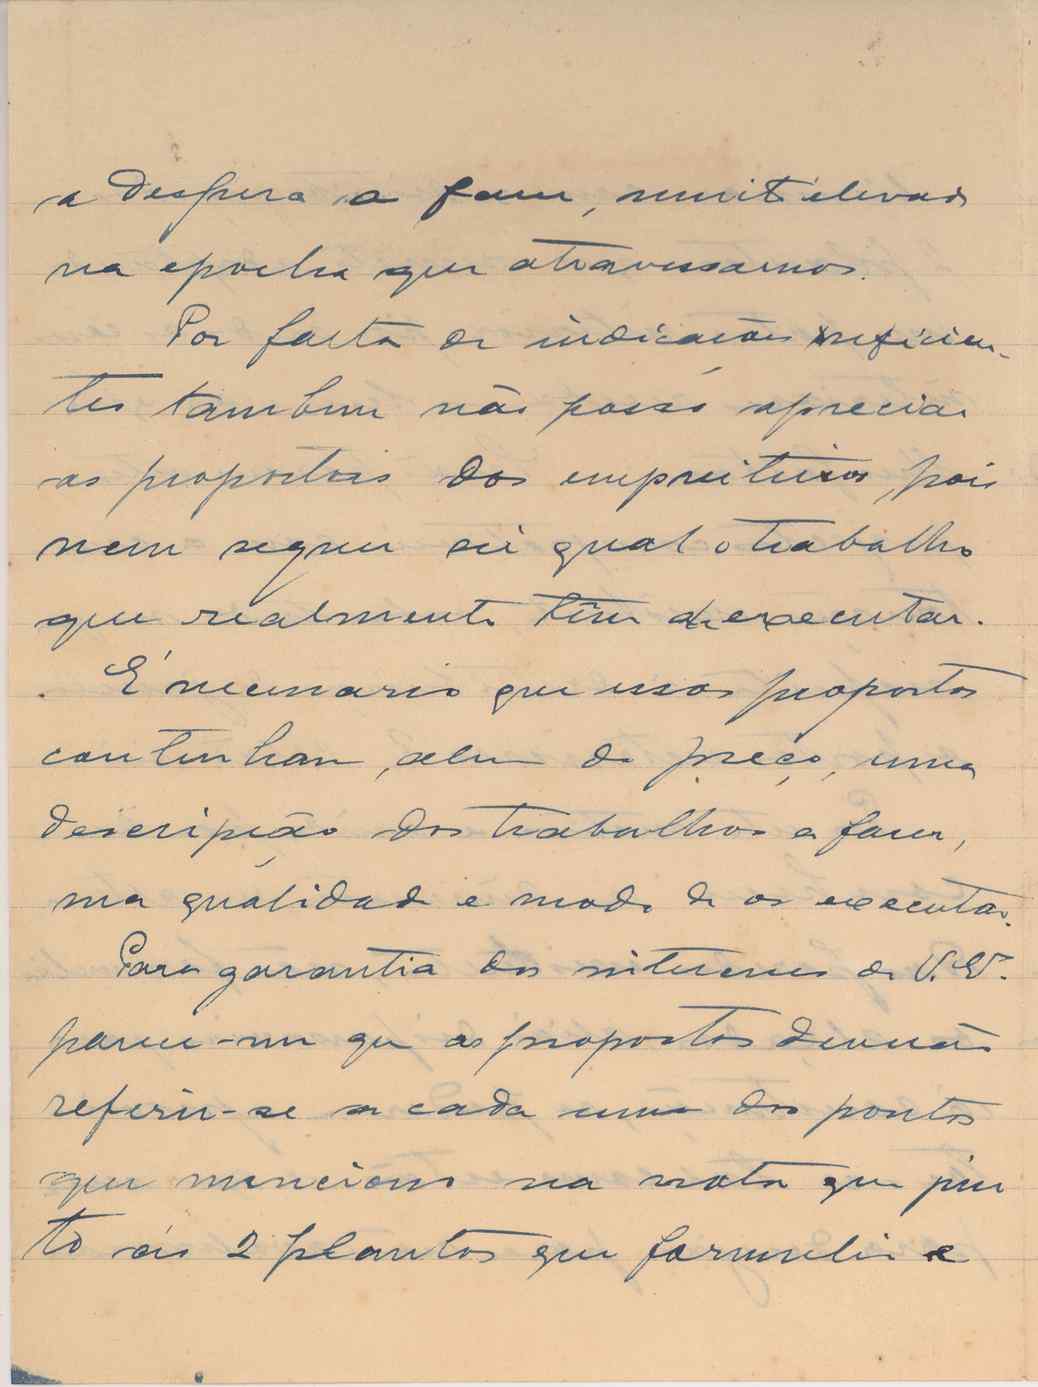 a despesa a fazer, muito elevada
na epocha que atravessamos.
Por falta de indicações suficien-
tes tambem não posso apreciar
as propostas dos empreiteiros, pois
nem sequer sei qual o trabalho
que realmente têm de executar.
É necessario que essas propostas
contenham, alem do preço, uma
descripção dos trabalhos a fazer,
sua qualidade e modo de os executar.
Para garantia dos interesses de V. Ex.
parece-me que as propostas deverão
referir-se a cada um dos pontos
que menciono na nota que jun
to ás 2 plantas que formulei e